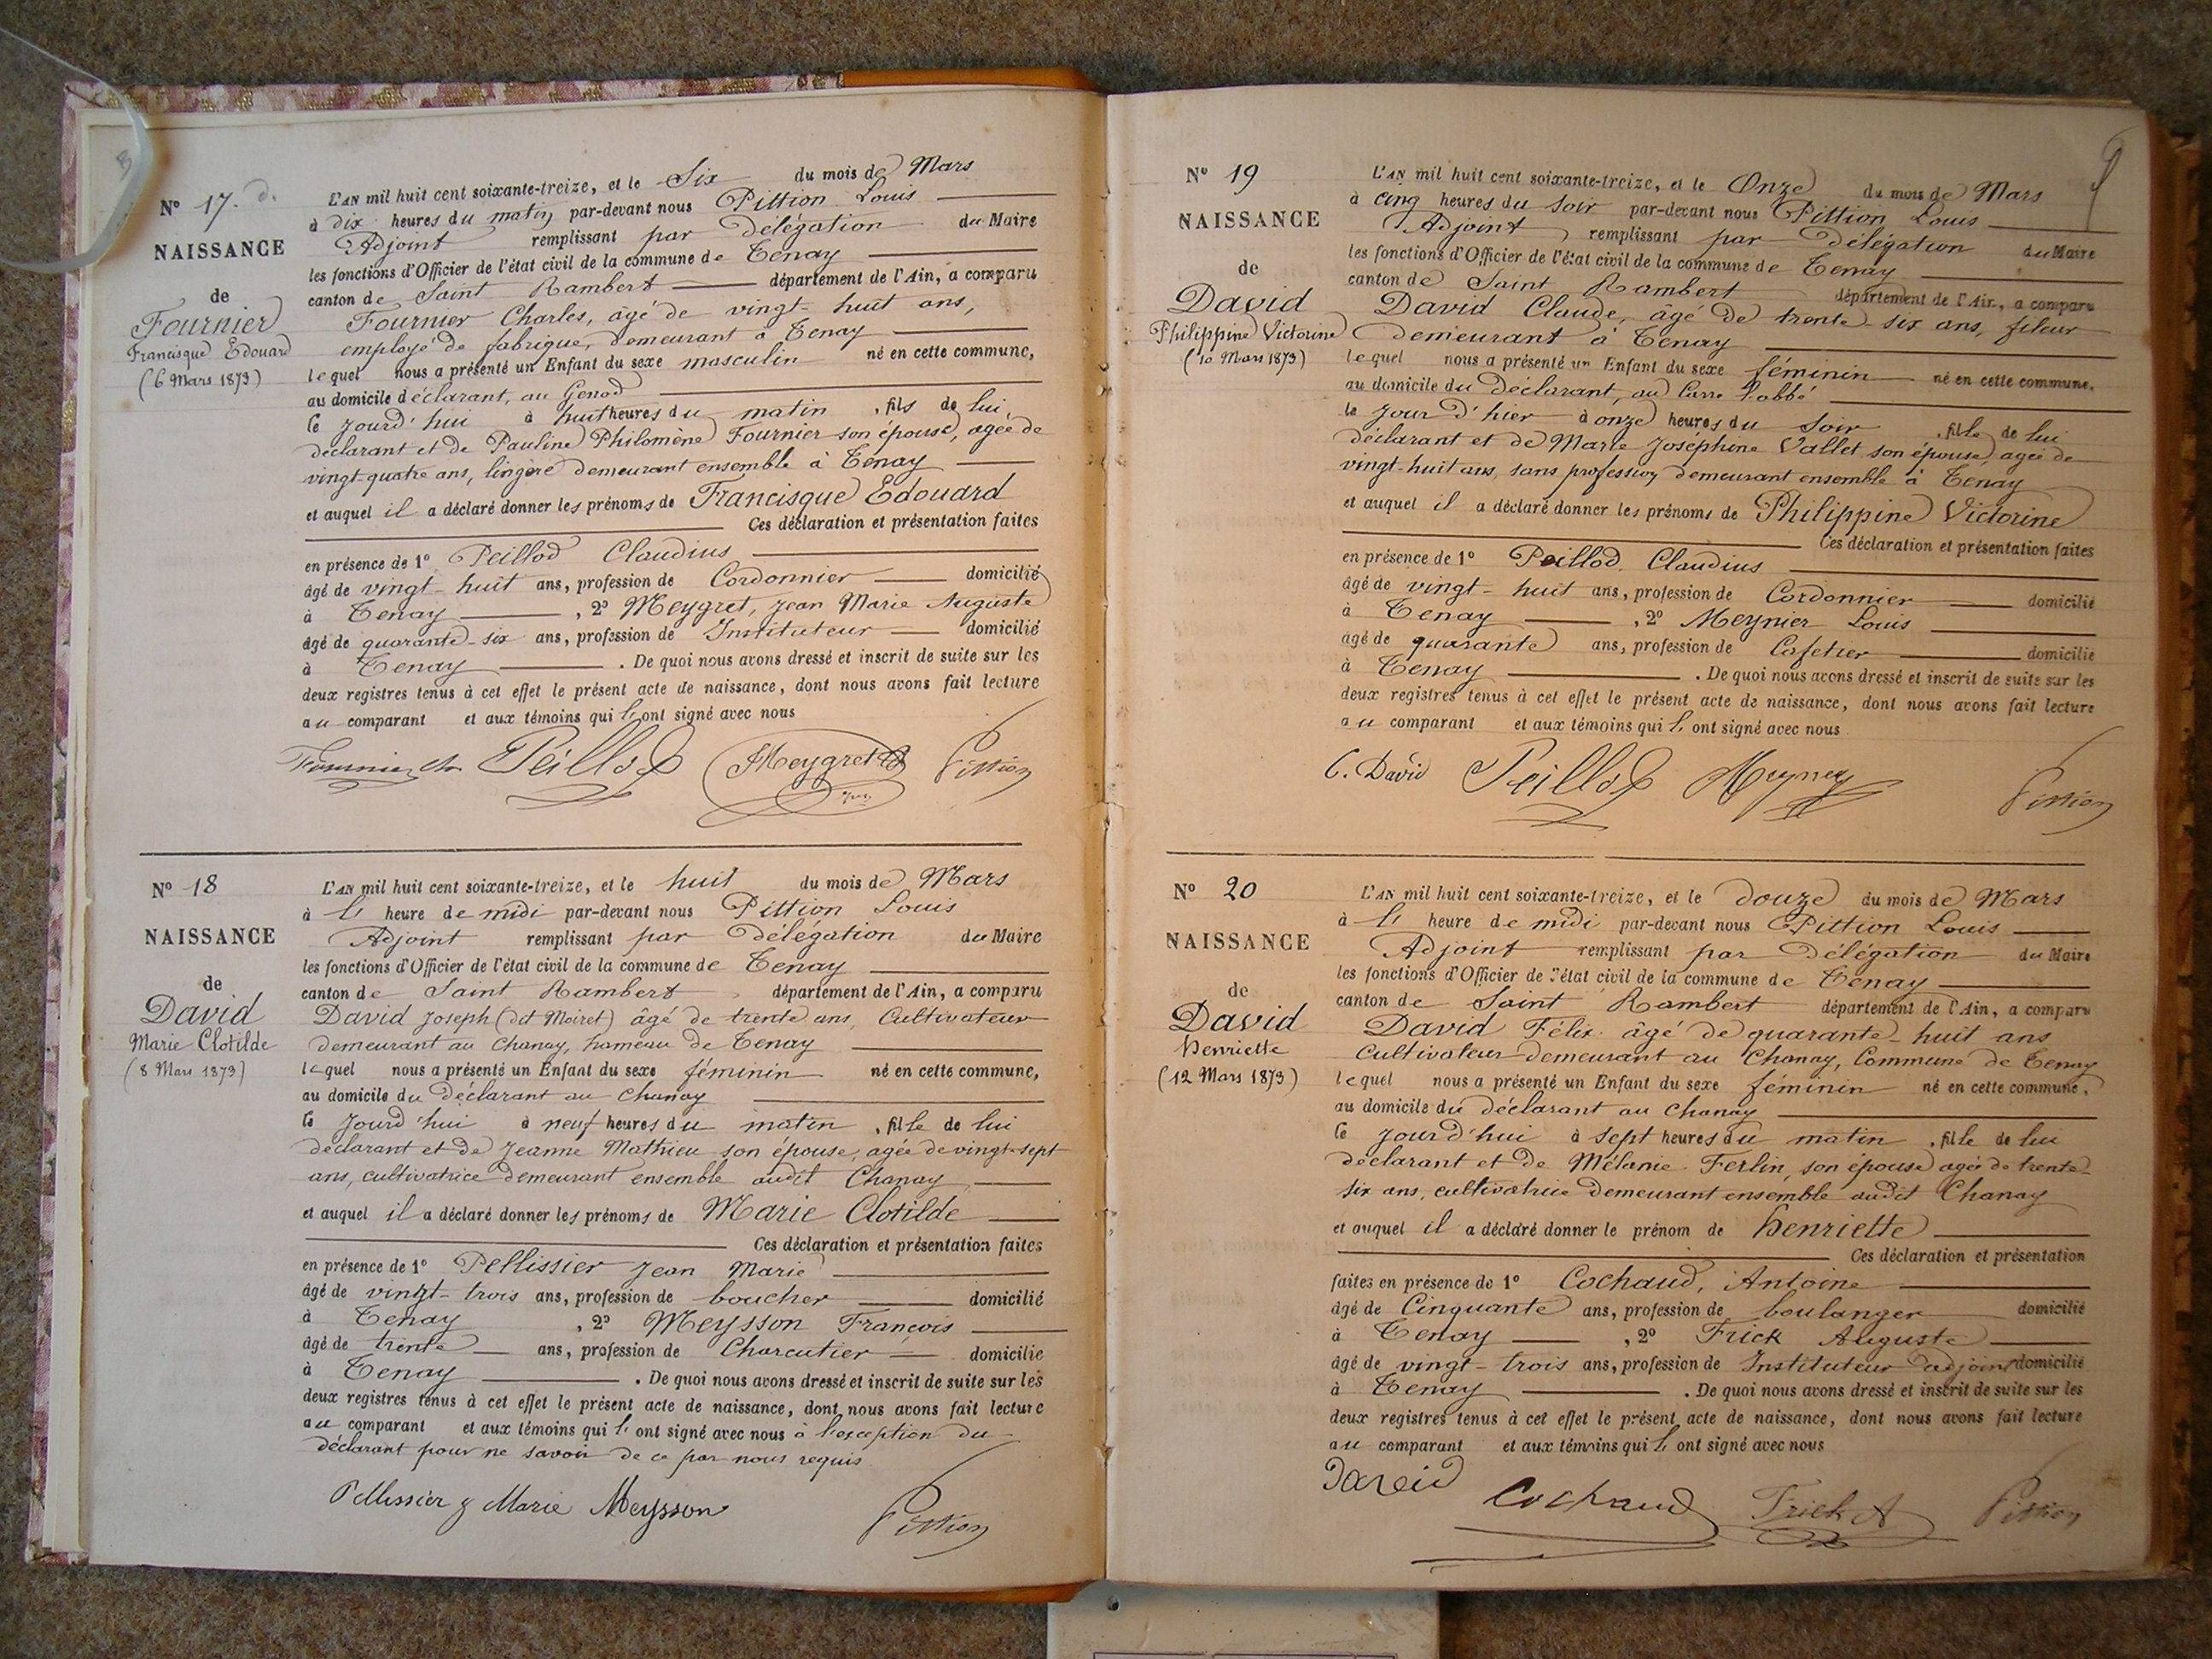 Nº 17.
NAISSANCE
de
Fournier
Francisque Edouard
(6 Mars 1873)
L'AN mil huit cent soixante-treize, et le Six du mois de Mars
à dix heures du matin par-devant nous Pittion Louis
Adjoint remplissant par délégation du Maire
les fonctions d'Officier de l'état civil de la commune de Tenay
canton de Saint Rambert département de l'Ain, a comparu
Fournier Charles, âgé de vingt-huit ans,
employé de fabrique, demeurant à Tenay
lequel nous a présenté un Enfant du sexe masculin né en cette commune,
au domicile déclarant, au Genod
le jourd'hui à huit heures du matin, fils de lui,
déclarant et de Pauline Philomène Fournier son épouse, agée de
vingt-quatre ans, lingère demeurant ensemble à Tenay
et auquel il a déclaré donner les prénoms de Francisque Edouard
Ces déclaration et présentation faites
en présence de 1º Peillod Claudius
âgé de vingt-huit ans, profession de Cordonnier domicilié
à Tenay, 2º Meygret, Jean Marie Auguste
âgé de quarante-six ans, profession de Instituteur domicilié
à Tenay. De quoi nous avons dressé et inscrit de suite sur les
deux registres tenus à cet effet le présent acte de naissance, dont nous avons fait lecture
au comparant et aux témoins qui l'ont signé avec nous
Fournier ch Peillod JMeygret Pittion
Nº 18
NAISSANCE
de
David
Marie Clotilde
(8 Mars 1873)
L'AN mil huit cent soixante-treize, et le huit du mois de Mars
à l' heure de midi par-devant nous Pittion Louis
Adjoint remplissant par délégation du Maire
les fonctions d'Officier de l'état civil de la commune de Tenay
canton de Saint Rambert département de l'Ain, a comparu
David Joseph (dit Moiret) âgé de trente ans, Cultivateur
demeurant au Chanay, hameau de Tenay
lequel nous a présenté un Enfant du sexe féminin né en cette commune,
au domicile du déclarant au Chanay
le jourd'hui à neuf heures du matin, fille de lui
déclarant et de Jeanne Mathieu son épouse, agée de vingt-sept
ans, cultivatrice demeurant ensemble audit Chanay
et auquel il a déclaré donner les prénoms de Marie Clotilde
Ces déclaration et présentation faites
en présence de 1º Pellissier Jean Marie
âgé de vingt-trois ans, profession de boucher domicilié
à Tenay, 2º Meysson François
âgé de trente ans, profession de Charcutier domicilié
à Tenay. De quoi nous avons dressé et inscrit de suite sur les
deux registres tenus à cet effet le présent acte de naissance, dont nous avons fait lecture
au comparant et aux témoins qui l'ont signé avec nous à l'exception du
déclarant pour ne savoir de ce par nous requis
Pellissier J Marie Meysson Pittion
Nº 19
NAISSANCE
de
David
Philippine Victorine
(10 Mars 1873)
L'AN mil huit cent soixante-treize, et le Onze du mois de Mars
à cinq heures du soir par-devant nous Pittion Louis
Adjoint remplissant par délégation du Maire
les fonctions d'Officier de l'état civil de la commune de Tenay
canton de Saint Rambert département de l'Ain, a comparu
David Claude, âgé de trente-six ans, fileur
demeurant à Tenay
lequel nous a présenté un Enfant du sexe féminin né en cette commune,
au domicile du déclarant, au
le jour d'hier à onze heures du soir, fille de lui
déclarant et de Marie Joséphine Vallet son épouse, agée de
vingt-huit ans, sans profession demeurant ensemble à Tenay
et auquel il a déclaré donner les prénoms de Philippine Victorine
Ces déclaration et présentation faites
en présence de 1º Peillod Claudius
âgé de vingt-huit ans, profession de Cordonnier domicilié
à Tenay, 2º Meynier Louis
âgé de quarante ans, profession de Cafetier domicilié
à Tenay. De quoi nous avons dressé et inscrit de suite sur les
deux registres tenus à cet effet le présent acte de naissance, dont nous avons fait lecture
au comparant et aux témoins qui l'ont signé avec nous
C. David Peillod Pittion
Nº 20
NAISSANCE
de
David
Henriette
(12 Mars 1873)
L'AN mil huit cent soixante-treize, et le douze du mois de Mars
à l' heure de midi par-devant nous Pittion Louis
Adjoint remplissant par délégation du Maire
les fonctions d'Officier de l'état civil de la commune de Tenay
canton de Saint Rambert département de l'Ain, a comparu
David Félix âgé de quarante-huit ans
Cultivateur demeurant au Chanay, Commune de Tenay
lequel nous a présenté un Enfant du sexe féminin né en cette commune,
au domicile du déclarant au Chanay
le jourd'hui à sept heures du matin, fille de lui
déclarant et de Mélanie Ferlin, son épouse agée de trente-
six ans, cultivatrice demeurant ensemble audit Chanay
et auquel il a déclaré donner le prénom de Henriette
Ces déclaration et présentation
faites en présence de 1º Cochaud, Antoine
âgé de Cinquante ans, profession de boulanger domicilié
à Tenay, 2º Frick Auguste
âgé de vingt-trois ans, profession de Instituteur adjoint domicilié
à Tenay. De quoi nous avons dressé et inscrit de suite sur les
deux registres tenus à cet effet le présent acte de naissance, dont nous avons fait lecture
au comparant et aux témoins qui l'ont signé avec nous
David Cochaud Frick A Pittion